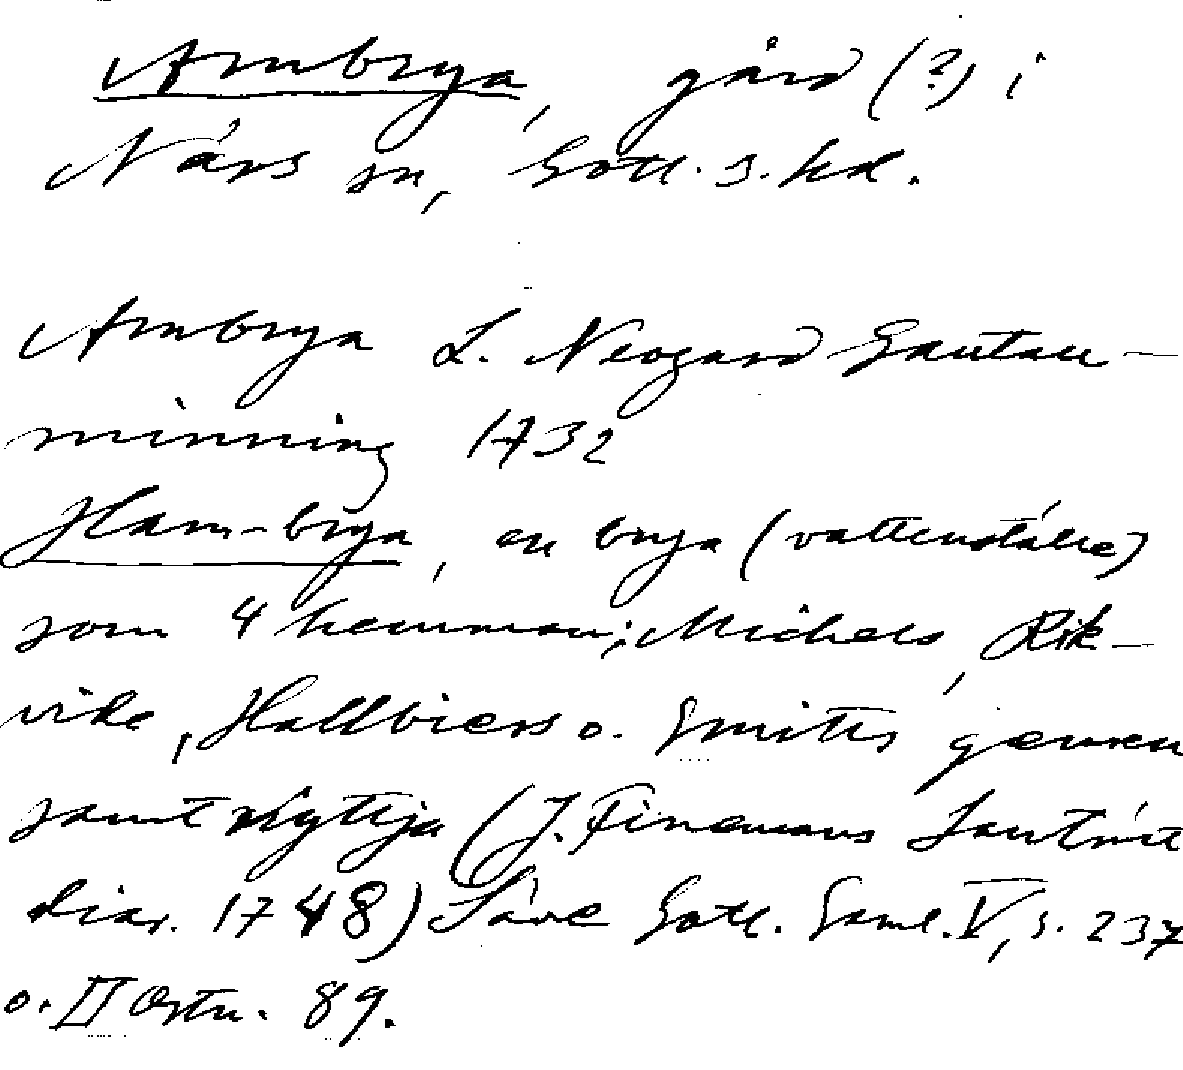 Ambrya, gård (?) i
Närs sn, Gotl. s. hd.
Ambrya L. Neogard Gautau-
minning 1732
Ham-brya, en brya (vattenställe)
som 4 hemman; Michels, Rik-
vide, Hallbiers o. Smitts gemen
samt nÿttja (J. Finemans Lantmät
diar. 1748) Säve Gotl. Saml. V, s. 237
o. II Ortn. 89.